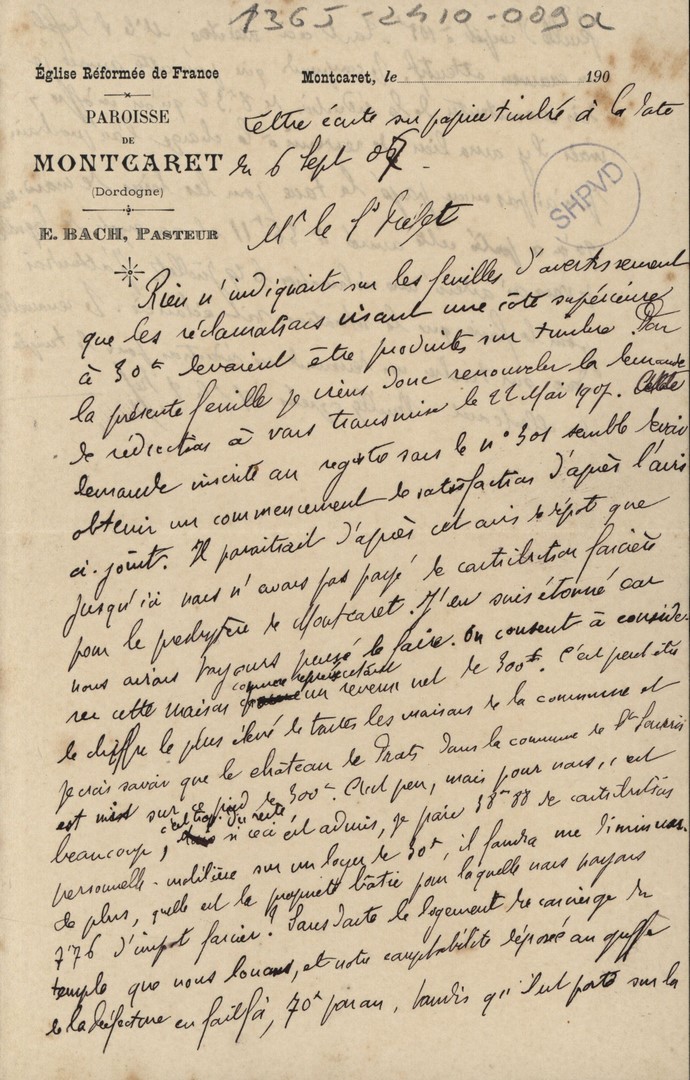 1365-2410-009a
Église Réformée de France
Montcaret, le 190
PAROISSE
DE
MONTCARET
(Dordogne)
E. BACH, PASTEUR
SHPVD
Lettre écrite sur papier timbré à la date
du 6 Sept 07.
Mr le s/ Préfet
Rien n'indiquait sur les feuilles d'avertissement
que les réclamations visant une côte supérieure
à 30 devaient être produites sur timbre. Par
la présente feuille je viens donc renouveler la demande
de réduction à vous transmise le 22 Mai 1907. Cette
demande inscrite au registre sous le n° 301 semble devoir
obtenir un commencement de satisfaction d'après l'avis
ci-joint. Il paraitrait d'après cet avis que
jusqu'ici nous n'avons pas payé de contribution foncière
pour le presbytère de Montcaret. J'en suis étonné car
nous avions toujours pensé le faire. On consent à considé-
rer cette maison comme représentant un revenu net de 300f. C'est peut être
le chiffre le plus élevé de toutes les maisons de la commune et
je crois savoir que le château de Prats dans la commune de
est mis sur ce pied de 300. C'est peu, mais pour nous, c'est
beaucoup, c'est trop. Du reste si ceci est admis, je paie 38 88 de contribution
personnelle-mobilière sur un loyer de 30, il faudra me diminuer.
De plus, quelle est la propriété bâtie pour laquelle nous payons
7f76 d'impot foncier? Sans doute le logement du concierge du
temple que nous louons, et notre comptabilité déposée au greffe
de la Préfecture en fait foi, 70f par an, tandis qu'il est porté sur la